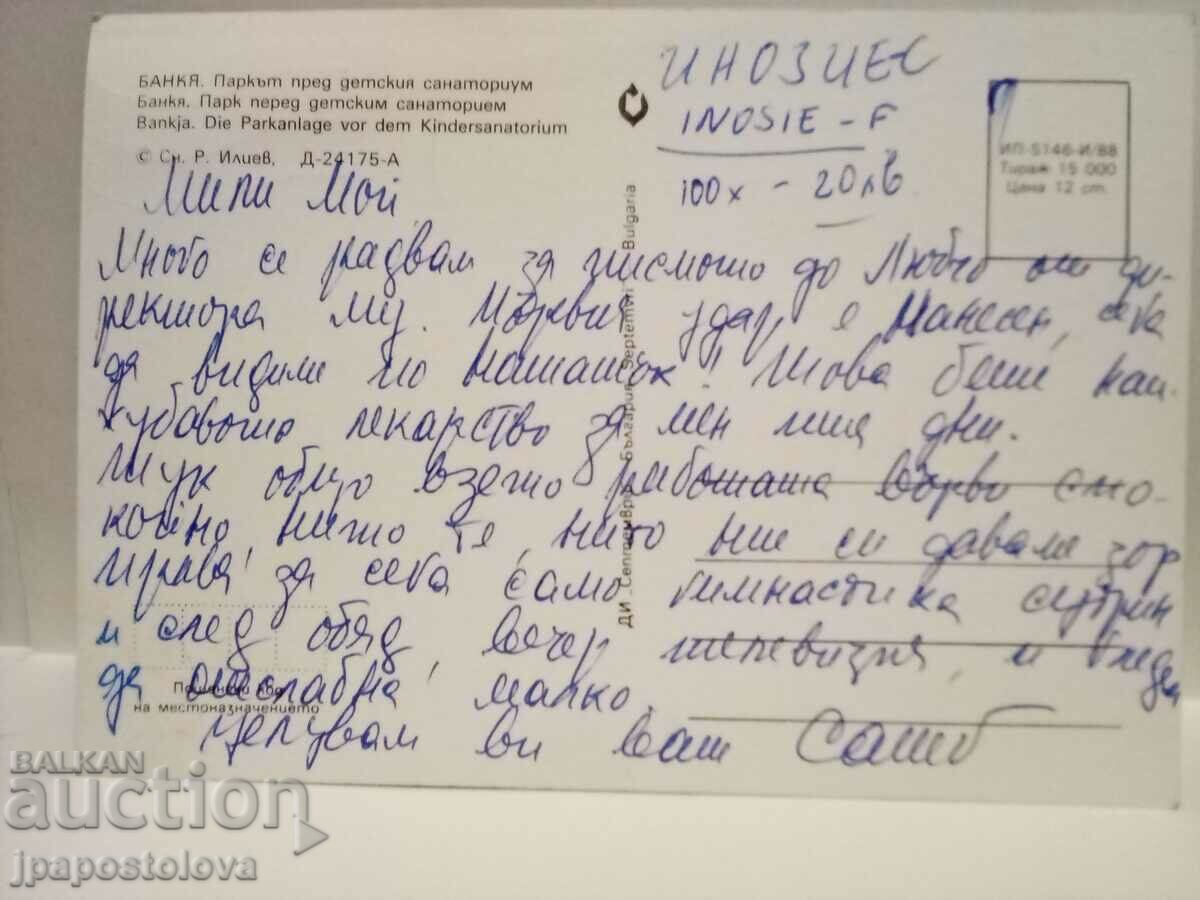 БАНКЯ. Паркът пред детския санаториум
Банкя. Парк перед детским санаторием
Bankja. Die Parkanlage vor dem Kindersanatorium
© Сн. Р. Илиев, Д-24175-А
ИНОЗИЕС
INOSIE - F
100х - 20лв
ИП-5146-И/88
Тираж 15 000
Цена 12 ст.
ДИ „Септември“ България Septemvri Bulgaria
Мили Мои
Много се радвам за писмото до Любчо от ди-
ректора му. Първия удар е нанесен, сега
да видим по нататък! Това беше най
хубавото лекарство за мен тия дни.
Тук общо взето работата върви спо-
койно нито те, нито ние си даваме зор
за сега само гимнастика сутрин
и след обяд, вечер телевизия, и гледам
да отслабна малко.
Целувам ви ваш Сашо
Пощенски код
на местоназначението
BALKAN
auction
jpapostolova